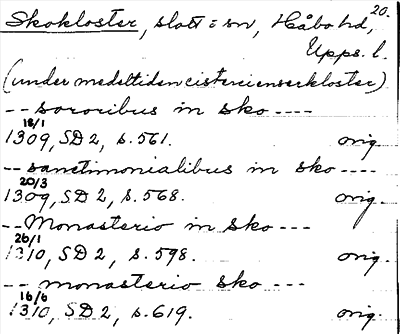 20.
Skokloster, slott o sn, Håbo hd,
Upps. l.
(under medeltiden cistercienserkloster)
-- sororibus in sko ----
18/1
1309, SD 2, s. 561. orig.
-- sanctimonialibus in sko ----
20/3
1309, SD 2, s. 568. orig.
-- Monasterio in sko ---
26/1
1310, SD 2, s. 598. orig.
-- monasterio sko ---
16/6
1310, SD 2, s. 619. orig.